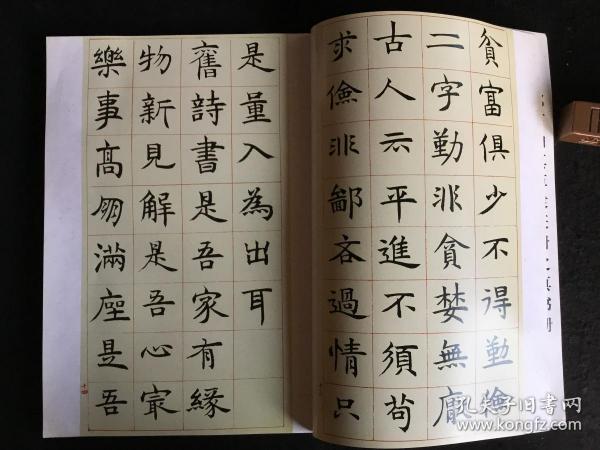 貧富俱少不得勤儉
二字勤非貪婪無厭
古人云平進不須苟
求儉非鄙吝過情只
是量入為出耳
舊詩書是吾家有緣
物新見解是吾心冣
樂事高朋滿座是吾
十四
孔夫子旧书网
www.kongfz.com